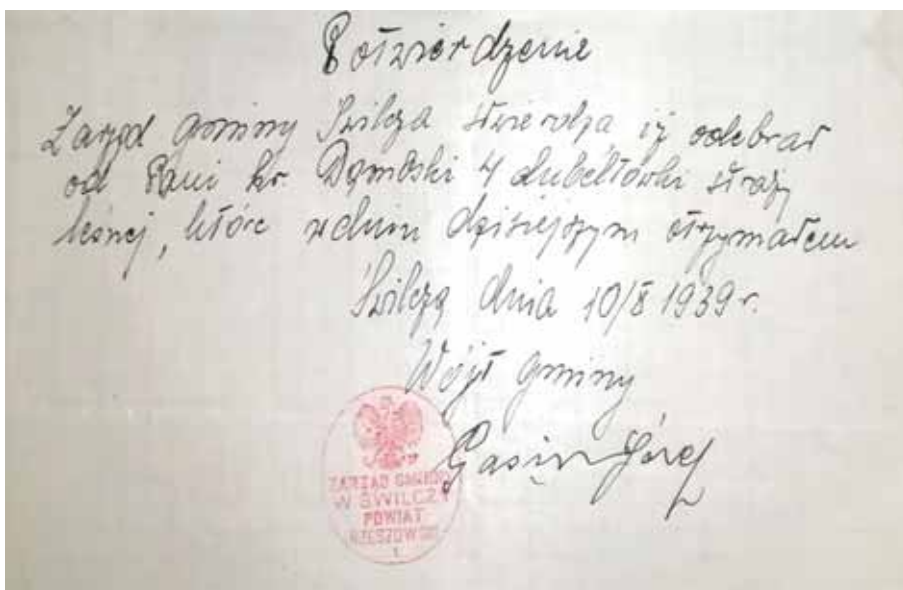 Potwierdzenie
Zarząd gminy Świlcza stwierdza iż odebrał
od Pani hr. Dąmbski 4 dubeltówki straży
leśnej, które w dniu dzisiejszym otrzymałem
Świlcza dnia 10/X 1939 r.
Wójt gminy
Józef
ZARZĄD GMINNY
W ŚWILCZY
POWIAT
RZESZOWSKI
1